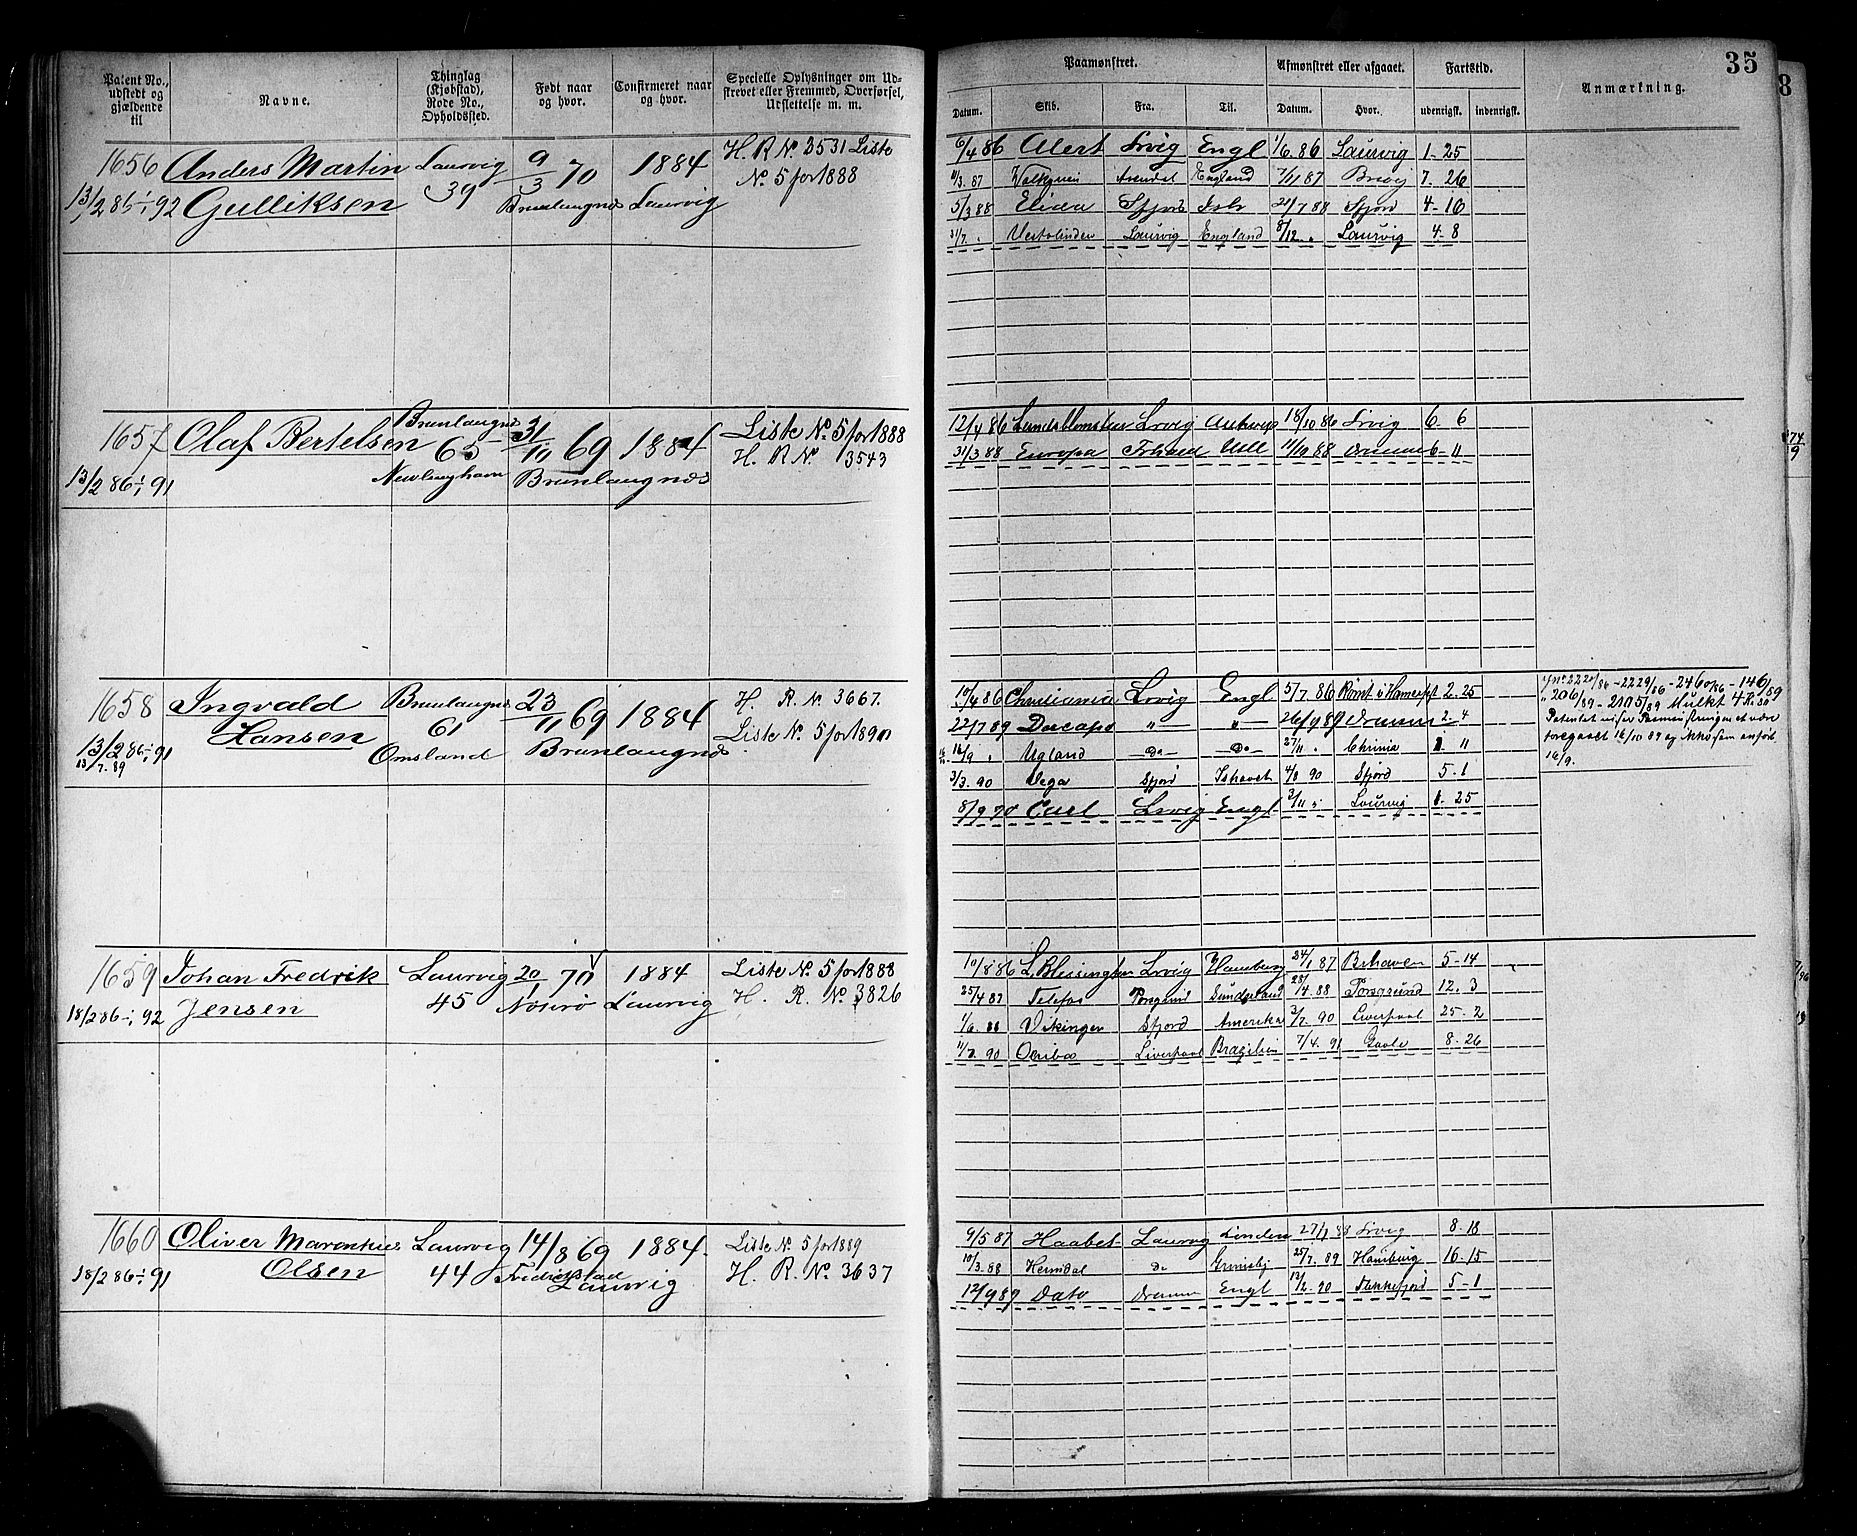 Patent No., udstedt og gjældende til
Navne.
Thinglag (Kjøbstad), Rode No., Opholdssted.
Født naar og hvor.
Confirmeret naar og hvor.
Specielle Oplysninger om Udskrevet eller Fremmed, Overførsel, Udslettelse m. m.
Paamønstret.
Afmønstret eller afgaaet.
Fartstid.
Anmærkning.
35
Datum. Skib. Fra. Til. Datum. Hvor. udenrigsk. indenrigsk.
1656 Anders Martin Laurvig 9/3 70 1884 H. R No. 3531 Liste
13/2 86 1/1 92 Gulliksen 39 Brunlaugnæs Laurvig No. 5 for 1888
6/4 86 Alert Lrvig Engl 1/6 86 Laurvig 1-25
11/3. 87 Arendal England 7/11 87 Brevig 7-26
5/3 88 Elida Sfjord Ishv 21/7 88 Sfjord 4-16
31/7 " Vestalinden Laurvig England 8/12 " Laurvig 4-8
1657 Olaf Bertelsen Brunlaugnæs 65 31/10 69 1884 Liste No. 5 for 1888
13/2 86 1/1 91 Brunlaugnæs H. R No. 3543
12/4 86 Lrvig Antwerp 18/10 86 Lrvig 6-6
31/3 88 Europa 11/10 88 6-11
1658 Ingvald Brunlaugnæs 23/11 69 1884 H. R. N. 3667.
Hansen 61 Liste No. 5 for 1890
13/2 86 1/1 91 Omsland Brunlaugnæs
13/7. 89
10/4 86 Christiania Lrvig Engl 5/7. 86 Rømt i 2-25
22/7 89 Dacapo " " 26/9 89 Drammen 2-4
16/9 " Ugland Do Do 27/11 " Chrania 1. 11
3/3. 90 Vega Sfjord Ishavet 4/8 90 Sfjord 5-1
8/9 90 Carl Lrvig Engl 2/11 " Laurvig 1. 25
Mulkt 4 Kr 50
Patentet viser Paamønstringen at være
foregaaet 16/10 89 og ikke som anført
16/9.
1659 Johan Fredrik Laurvig 20/1 70 1884 Liste No. 5 for 1888
18/2 86 1/1 92 Jensen 45 Nøterø Laurvig H. R. No. 3826
10/8 86 L. Blessington Lrvig Hamburg 24/1 87 Brhaven 5-14
25/4 87 Telefon Porsgrund Sundsvaland 28/4. 88 Porsgrund 12. 3
1/6. 88 Vikingen Sfjord Amerika 2/7. 90 Liverpool 25-2
11/7. 90 Liverpool Brazilien 7/4. 91 Goole 8. 26
1660 Oliver Marentius Laurvig 14/8 69 1884. Liste No. 5 for 1889
18/2 86 1/1 91 Olsen 44 Fredrickstad Laurvig H. R. No. 3637
9/5 87 Haabet Laurvig London 27/1 88 Lrvig 8-18
10/3. 88 Heimdal Do Grimsby 25/7. 89 Hamburg 16-15
12/9 89 Dato Drammen Engl 12/2. 90 Flekkefjord 5-1